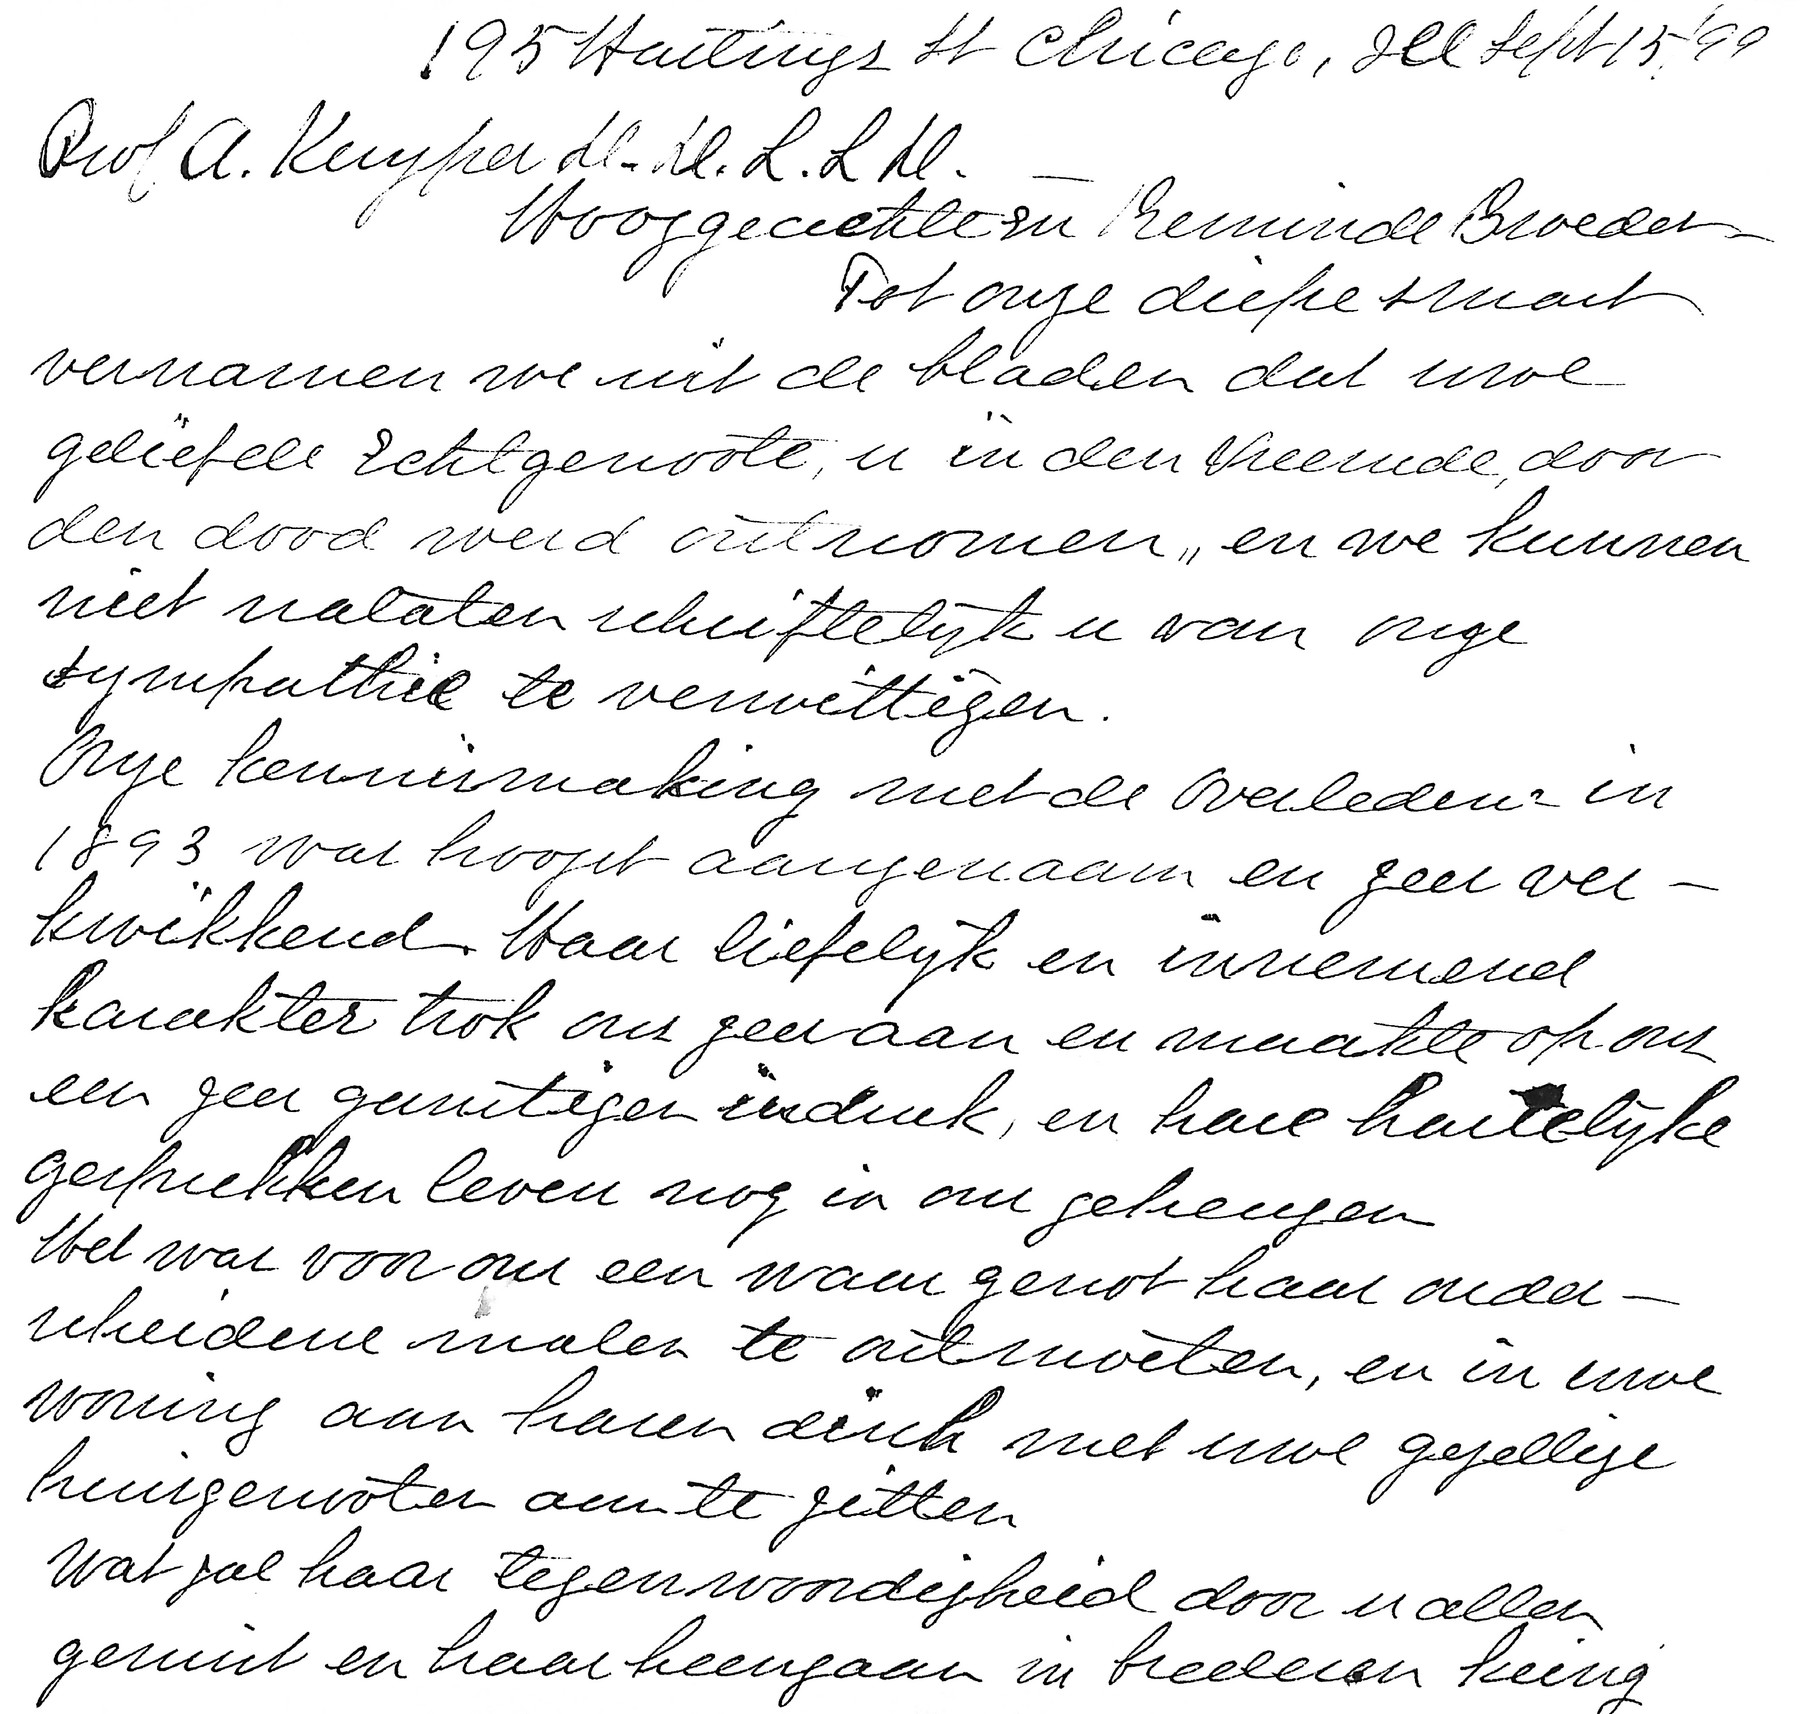 195 Hastings St Chicago, Ill Sept 15, '99
Prof A. Kuyper D.D. L.L.D. —
Hooggeachte en Beminde Broeder
Tot onze diepe smart
vernamen we uit de bladen dat uwe
geliefde Echtgenoote, u in den Vreemde, door
den dood werd ontnomen,, en we kunnen
niet nalaten schriftelijk u van onze
sympathie te verwittigen.
Onze kennismaking met de Overledene in
1893 was hoogst aangenaam en zeer ver-
kwikkend. Haar liefelijk en innemend
karakter trok ons zeer aan en maakte op ons
een zeer gunstigen indruk, en hare hartelijke
gesprekken leven nog in ons geheugen
Het was voor ons een waar genot haar onder-
scheidene malen te ontmoeten, en in uwe
woning aan haren disch met uwe gezellige
huisgenooten aan te zitten
Wat zal haar tegenwoordigheid door u allen
gemist en haar heengaan in breederen kring